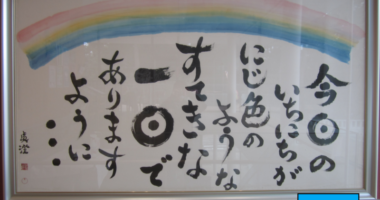 今日の
いちにちが
にじ色の
ような
すてきな
一日で
あります
ように